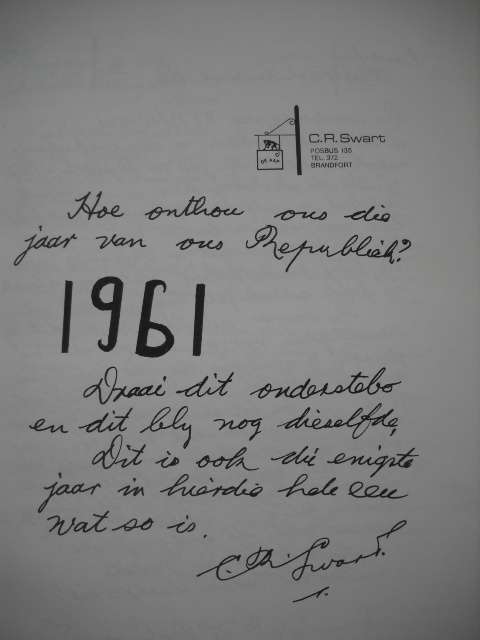 C.R. Swart
POSBUS 135
TEL. 372
BRANDFORT
Hoe onthou ons die
jaar van ons Republiek?
1961
Draai dit onderstebo
en dit bly nog dieselfde,
Dit is ook die enigste
jaar in hierdie hele eeu
wat so is.
C.R. Swart.